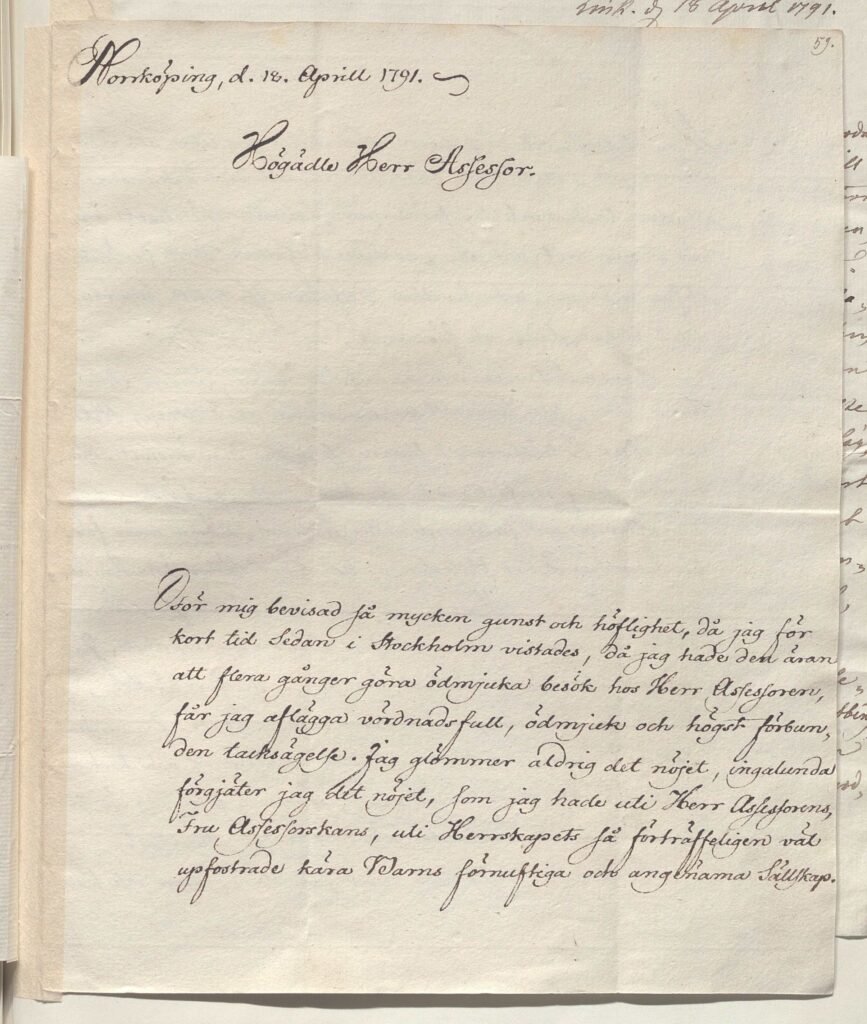 ink. d 18 April 1791.
59.
Norrköping, d. 18. Aprill 1791.
Högädle Herr Assessor.
För mig bevisad så mycken gunst och höflighet, då jag för
kort tid sedan i Stockholm vistades, då jag hade den äran
att flera gånger göra ödmjuka besök hos Herr Assessoren,
får jag aflägga vördnadsfull, ödmjuk och högst förbun,
den tacksägelse. Jag glömmer aldrig det nöjet, ingalunda
förgjäter jag det nöjet, som jag hade uti Herr Assessorens,
Fru Assessorskans, uti Herrskapets så förträffeligen väl
upfostrade kära Barns förnuftiga och angenäma Sällskap.